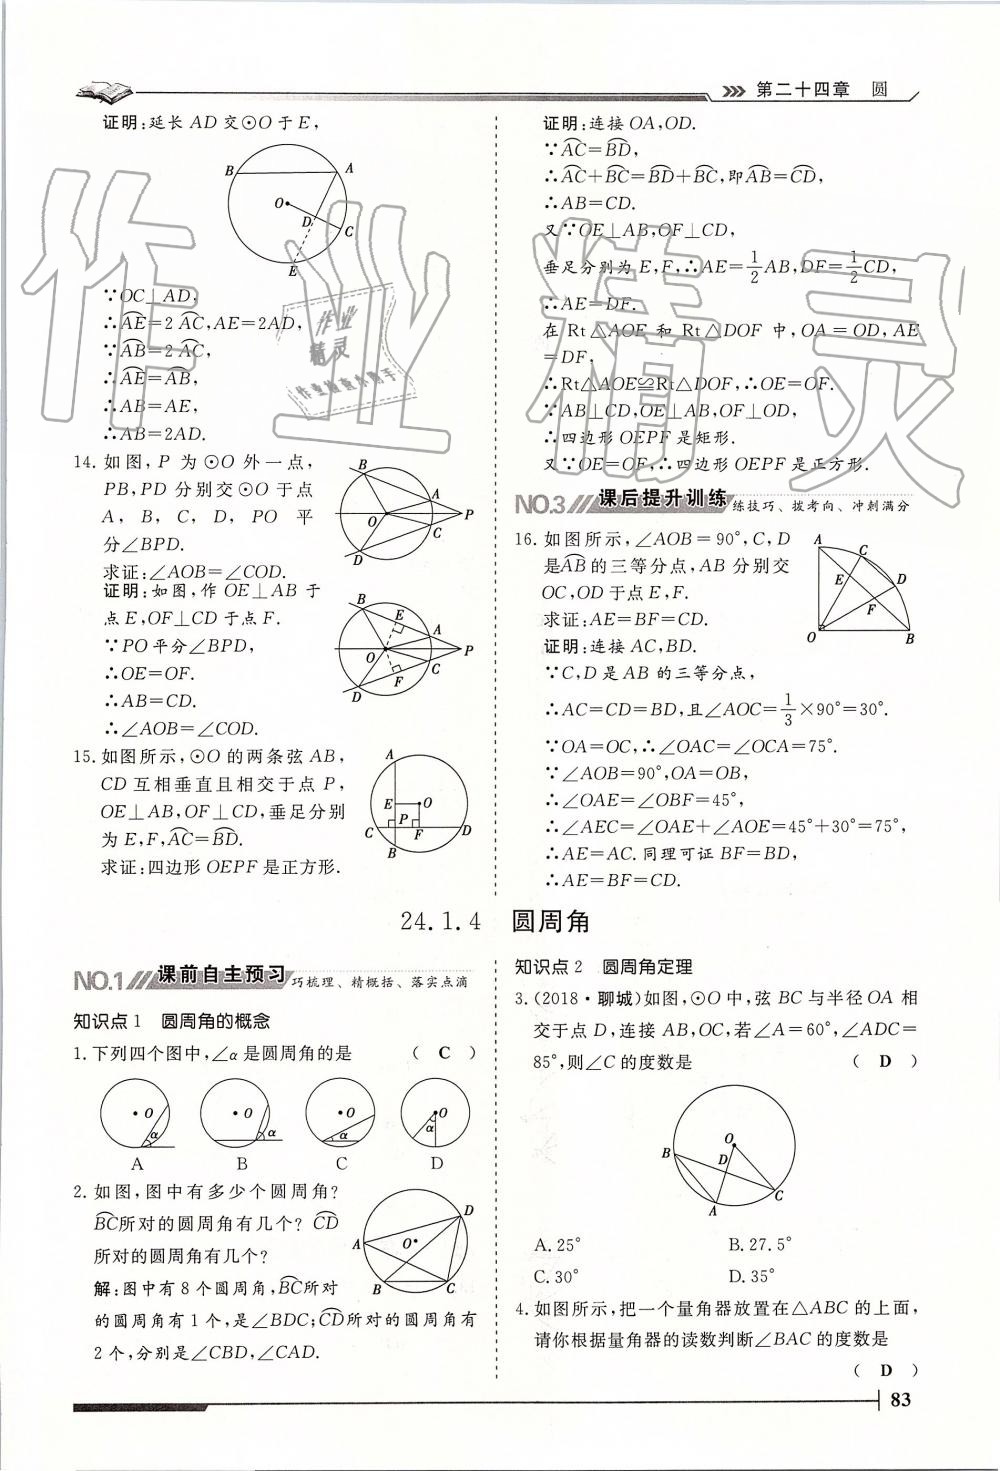 第二十四章 圆
证明:延长 AD 交⊙O 于 E,
B
A
O
D
C
E
∵OC⊥AD,
∴A͡E=2 A͡C,AE=2AD,
∵A͡B=2 A͡C,
∴A͡E=A͡B,
∴AB=AE,
∴AB=2AD.
14. 如图, P 为 ⊙O 外一点,
PB,PD 分别交⊙O 于点
A, B, C, D, PO 平
分∠BPD.
求证:∠AOB=∠COD.
B
A
O
P
C
D
证明:如图,作 OE⊥AB 于
点 E,OF⊥CD 于点 F.
∵PO 平分∠BPD,
∴OE=OF.
∴AB=CD.
∴∠AOB=∠COD.
B
E
A
O
P
F
C
D
15. 如图所示,⊙O 的两条弦 AB,
CD 互相垂直且相交于点 P,
OE⊥AB,OF⊥CD,垂足分别
为 E,F,A͡C=B͡D.
求证:四边形 OEPF 是正方形.
A
E
O
P
C
F
D
B
证明:连接 OA,OD.
∵A͡C=B͡D,
∴A͡C+B͡C=B͡D+B͡C,即A͡B=C͡D,
∴AB=CD.
又∵OE⊥AB,OF⊥CD,
垂足分别为 E,F,∴AE=1/2AB,DF=1/2CD,
∴AE=DF.
在 Rt△AOE 和 Rt△DOF 中,OA=OD,AE
=DF,
∴Rt△AOE≌Rt△DOF,∴OE=OF.
∵AB⊥CD,OE⊥AB,OF⊥OD,
∴四边形 OEPF 是矩形.
又∵OE=OF,∴四边形 OEPF 是正方形.
NO.3 课后提升训练 练技巧、拨考向、冲刺满分
16. 如图所示,∠AOB=90°,C,D
是A͡B的三等分点,AB 分别交
OC,OD 于点 E,F.
求证:AE=BF=CD.
A
C
E
D
F
O
B
证明:连接 AC,BD.
∵C,D 是 AB 的三等分点,
∴AC=CD=BD,且∠AOC=1/3×90°=30°.
∵OA=OC,∴∠OAC=∠OCA=75°.
∵∠AOB=90°,OA=OB,
∴∠OAE=∠OBF=45°,
∴∠AEC=∠OAE+∠AOE=45°+30°=75°,
∴AE=AC.同理可证 BF=BD,
∴AE=BF=CD.
24.1.4 圆周角
NO.1 课前自主预习 巧梳理、精概括、落实点滴
知识点 1 圆周角的概念
1. 下列四个图中,∠α 是圆周角的是 ( C )
O α
O α
O α
O α
A B C D
2. 如图,图中有多少个圆周角?
B͡C所对的圆周角有几个? C͡D
所对的圆周角有几个?
D
A
O
B
C
解:图中有 8 个圆周角,B͡C所对
的圆周角有 1 个,是∠BDC;C͡D所对的圆周角有
2 个,分别是∠CBD,∠CAD.
知识点 2 圆周角定理
3. (2018·聊城)如图,⊙O 中,弦 BC 与半径 OA 相
交于点 D,连接 AB,OC,若∠A=60°,∠ADC=
85°,则∠C 的度数是 ( D )
O
B
D
C
A
A. 25° B. 27.5°
C. 30° D. 35°
4. 如图所示,把一个量角器放置在△ABC 的上面,
请你根据量角器的读数判断∠BAC 的度数是
( D )
83
作业精灵
作业
精灵